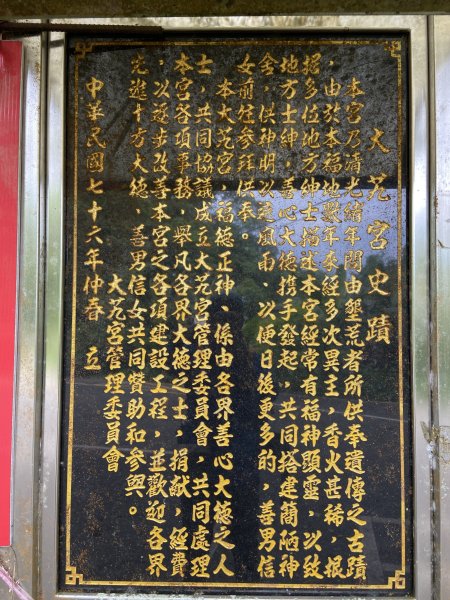 大芃宮史蹟
本宮乃清光緒年間由墾荒者所供奉遺傳之古蹟
，由於本福地數年來經多次異主，香火甚稀，根
据多位地方紳士描述本宮經常有福神顕靈，以致
地方士紳，善心大德携手發起，共同搭建簡陋神
舍，供神明以遮風雨、以便日後更多的，善男信
女前往參拜供奉。
本大芃宮，福德正神、係由各界善心大德之人
士，共同協議成立大芃宮管理委員會，共同處理
本宮各項事務，舉凡各界大德之士，捐献，經費
，以逐步改善本宮之各項建設工程，並歡迎各界
先進十方大德，善男信女共同贊助和參與。
大芃宮管理委員會
中華民國七十六年仲春　立